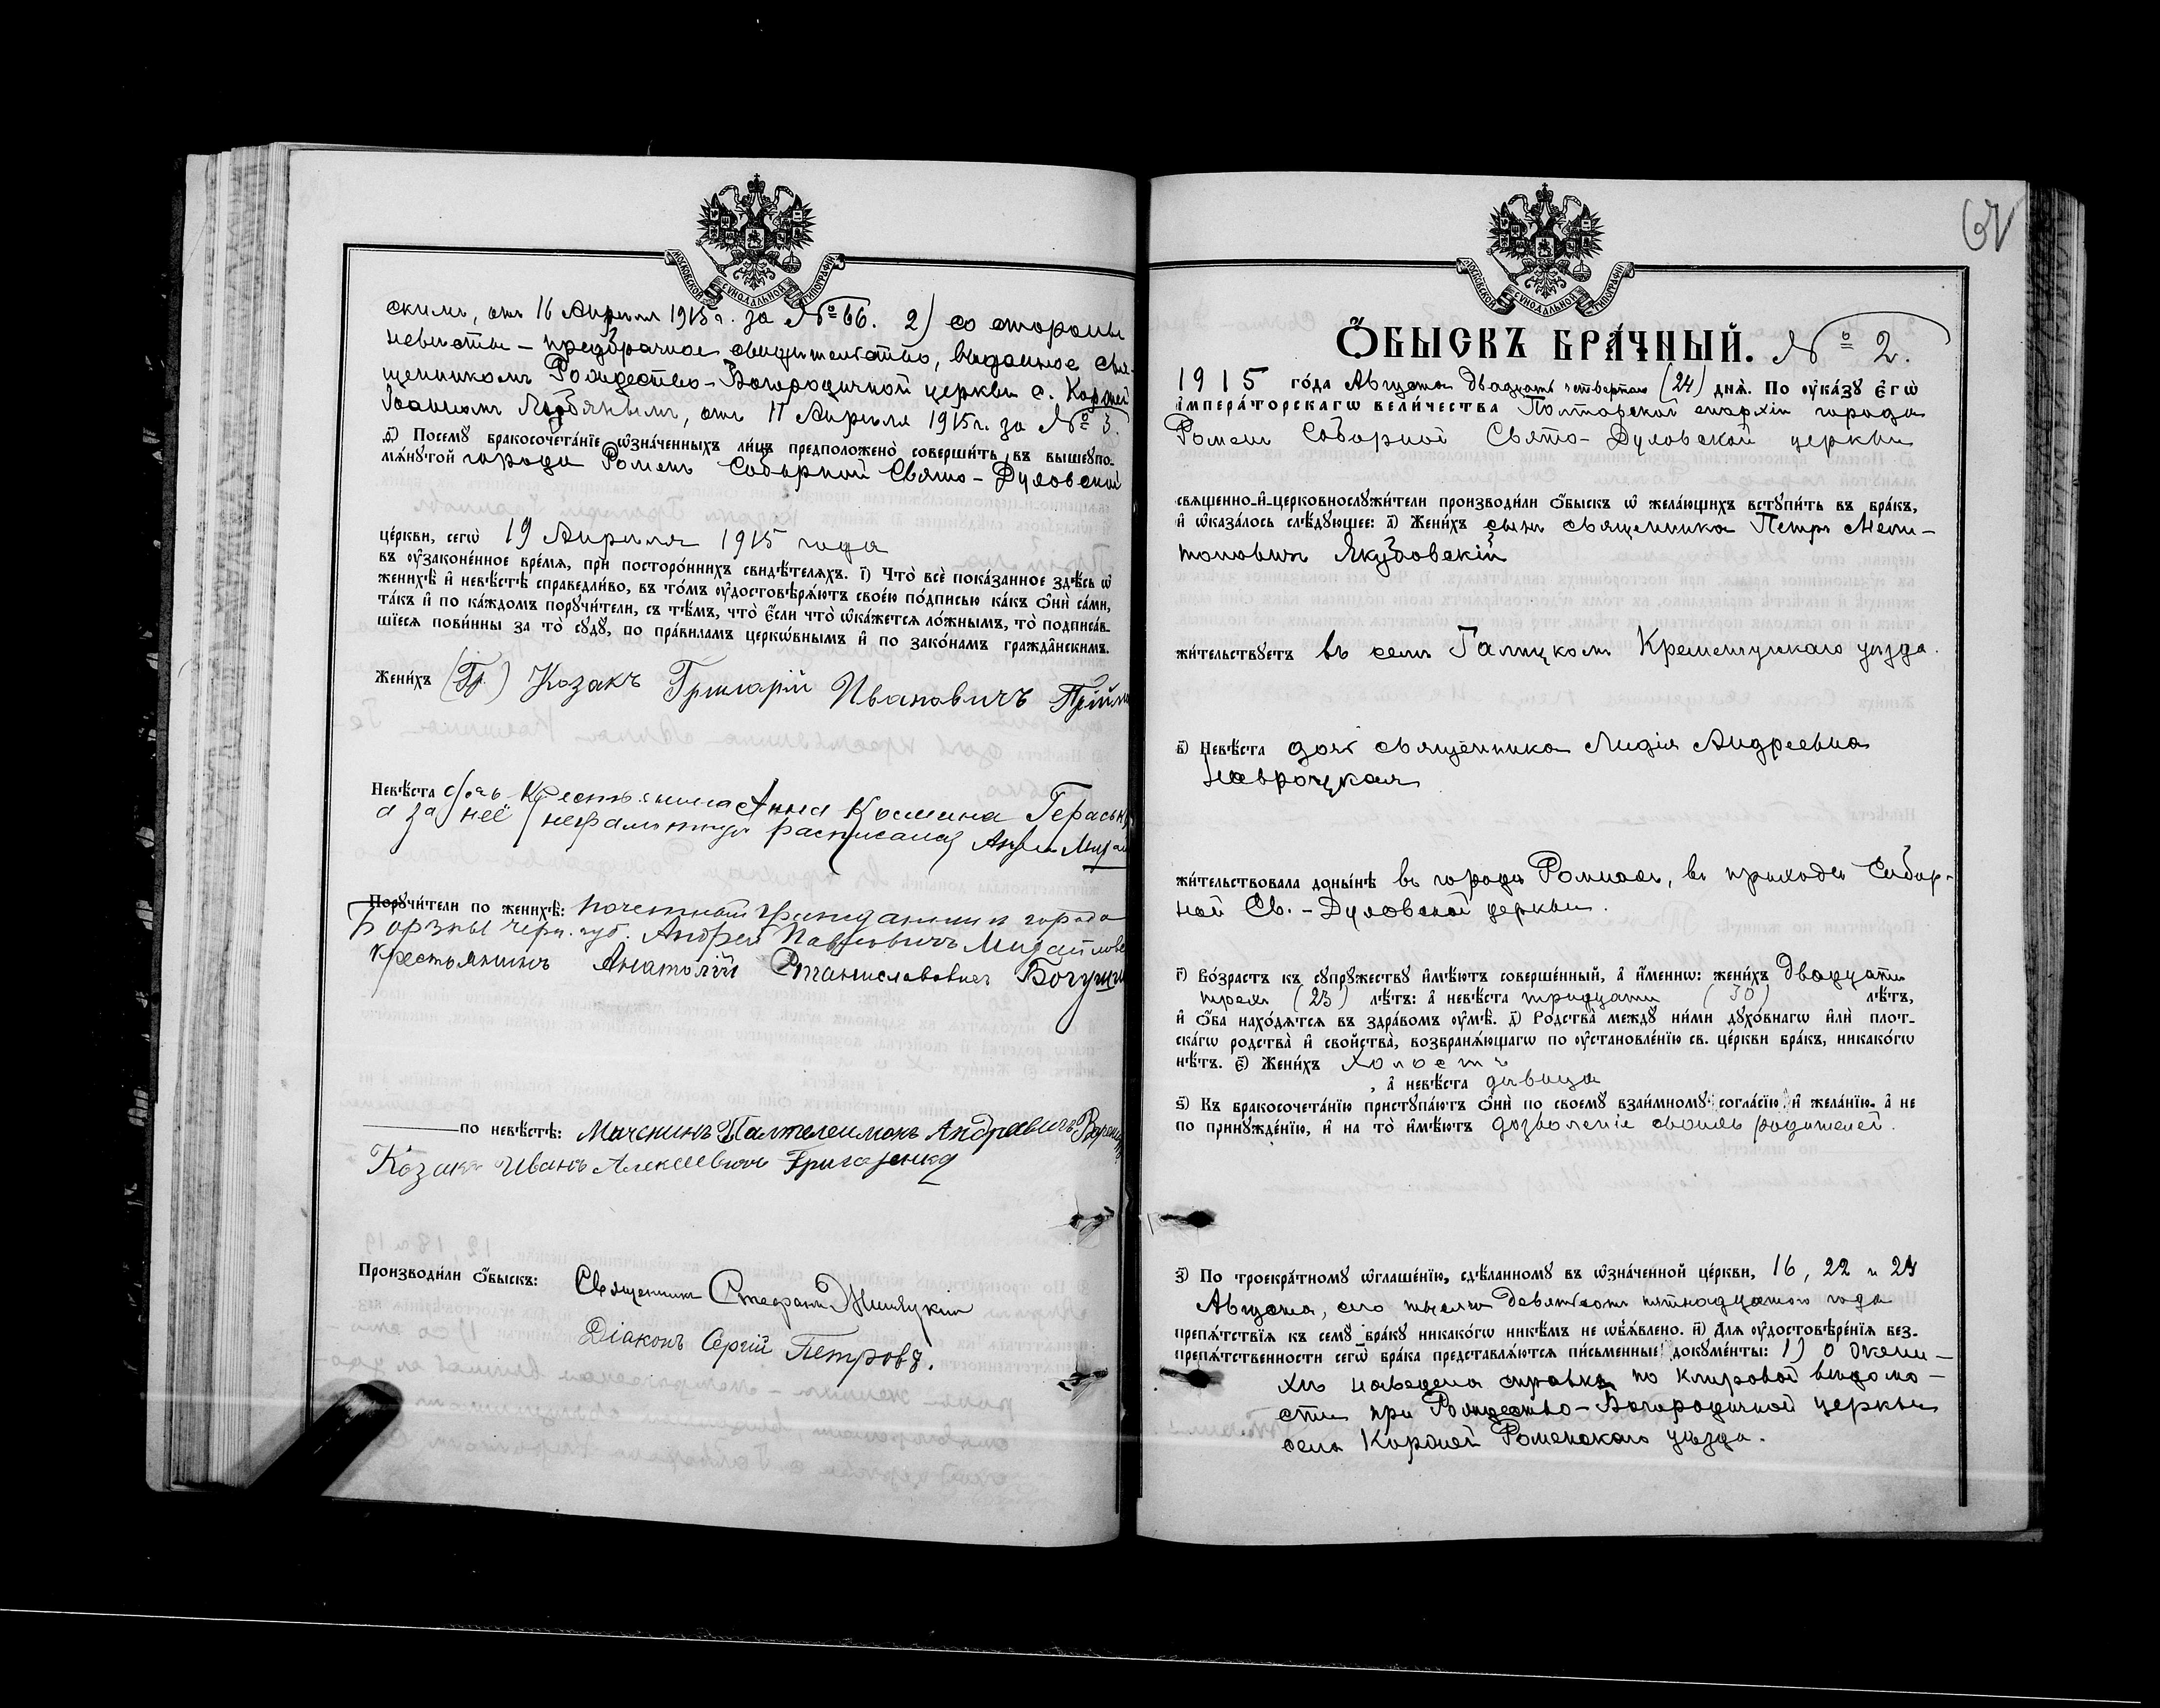 МОСКОВСКОЙ СУНОДАЛЬНОЙ ТИПОГРАФІИ
скимъ, отъ 16 Апрѣля 1915 г. за № 66. 2) со стороны
невѣсты – предбрачное свидѣтельство, выданное свя-
щенникомъ Рождество-Богородичной церкви с. Коровай
Іоанномъ, отъ 11 Апрѣля 1915 г. за № 3.
д҃і) Посему̀ бракосочета́нїе ѡ҆зна́ченныхъ ли́цъ предположено̀ соверши́ть въ вышеупо-
мѧ́нутой города Роменъ Соборной Свято-Духовской
це́ркви, сегѡ̀ 19 Апрѣля 1915 года
въ ᲂу҆законе́нное вре́мѧ, прѝ посторо́ннихъ свидѣ́телѧхъ. і҃) Что̀ всѐ пока́занное здѣ́сь ѡ҆
женихѣ̀ и҆ невѣ́стѣ справедли́во, въ то́мъ ᲂу҆достовѣрѧ́ютъ свое́ю по́дписью ка́къ ѻ҆нѝ са́ми,
та́къ и҆ по ка́ждомъ поручи́тели, съ тѣ́мъ, что̀ є҆́сли что̀ ѡ҆ка́жетсѧ ло́жнымъ, то̀ подписа́в-
шїесѧ пови́нны за то̀ суду̀, по пра́виламъ церко́внымъ и҆ по зако́намъ гражда́нскимъ.
Жени́хъ (Гр.) Козакъ Григорій Ивановичъ Прійм
Невѣ́ста дочь крестьянина Анна Космина Гераськ
а за неё неграмотную расписался
Поручи́тели по женихѣ̀: почетный гражданинъ города
Борзны Черн. губ. Андрей Павловичъ Михайлов
крестьянинъ Анатолій Станиславовичъ Богуш
по невѣ́стѣ: Мѣщанинъ Пантелеимонъ Андреевичъ
Козакъ Иванъ Алексеевичъ Григоренко
Производи́ли ѻ҆́быскъ: Священникъ Стефанъ
Діаконъ Сергій Петровъ.
МОСКОВСКОЙ СУНОДАЛЬНОЙ ТИПОГРАФІИ
Ѻ҆́БЫСКЪ БРА́ЧНЫЙ. № 2.
1915 го́да Августа двадцать четвертаго (24) днѧ̀. По ᲂу҆ка́зу є҆гѡ̀
і҆мпера́торскагѡ вели́чества Полтавской епархіи города
Роменъ Соборной Свято-Духовской церкви
сващенно-и҆-церковнослужи́тели производи́ли ѻ҆́быскъ ѡ҆ жела́ющихъ вступи́ть въ бра́къ,
и҆ ѡ҆каза́лось слѣ́дующее: а҃) Жени́хъ сынъ священника Петръ Меѳи-
топовичъ Якубовскій
жи́тельствуетъ въ селѣ Галицкомъ Кременчугскаго уѣзда.
в҃) Невѣ́ста дочь священника Лидія Андреевна
Навроцкая
жи́тельствовала доны́нѣ въ городѣ Ромнахъ, въ приходѣ Собор-
ной Св.-Духовской церкви.
г҃) Во́зрастъ къ супру́жеству и҆мѣ́ютъ соверше́нный, а҆ и҆́менно: жени́хъ двадцати
трехъ (23) лѣ́тъ: а҆ невѣ́ста тридцати (30) лѣ́тъ,
и҆ ѻ҆́ба нахо́дѧтсѧ въ здра́вомъ ᲂу҆мѣ̀. д҃) Родства̀ между ни́ми духо́внагѡ и҆лѝ плот-
ска́гѡ родства̀ и҆ сво́йства, возбранѧ́ющагѡ по ᲂу҆становле́нїю св. це́ркви бра́къ, никако́гѡ
нѣ́тъ. є҃) Жени́хъ холостъ
, а҆ невѣ́ста дѣвица
ѕ҃) Къ бракосочета́нїю приступа́ютъ ѻ҆нѝ по своему̀ взаи́мному согла́сїю и҆ жела́нїю, а҆ не
по принужде́нїю, и҆ на то̀ и҆мѣ́ютъ дозволеніе своихъ родителей.
з҃) По троекра́тному ѡ҆глаше́нїю, сдѣ́ланному въ ѡ҆зна́ченной це́ркви, 16, 22 и 23
Августа, сего тысяча девятьсотъ пятнадцатаго года
препѧ́тствїѧ къ сему̀ бра́ку никако́гѡ никѣ́мъ не ѡ҆бъѧ́влено. и҃) Длѧ ᲂу҆достовѣре́нїѧ без-
препѧ́тственности сегѡ̀ бра́ка представлѧ́ютсѧ пи́сьменные докуме́нты: 1) о жени-
хѣ наведена справка по клировой вѣдомо-
сти при Рождество-Богородичной церкви
села Коровай Роменскаго уѣзда.